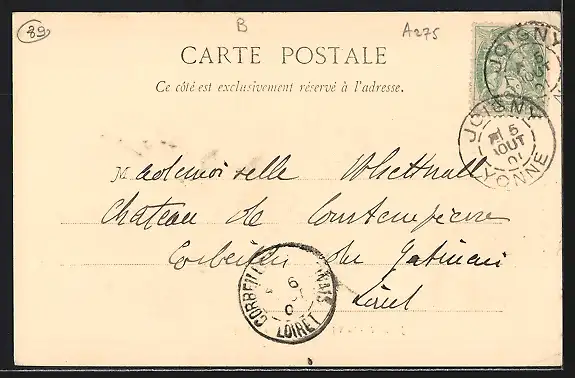 89
B
A275
CARTE POSTALE
Ce côté est exclusivement réservé à l'adresse.
JOIGNY
JOIGNY
5
AOUT
01
YONNE
Mademoiselle Whettnall
Chateau de Courtempierre
Corbeilles du Gatinais
Loiret
CORBEILLES
6
0
LOIRET